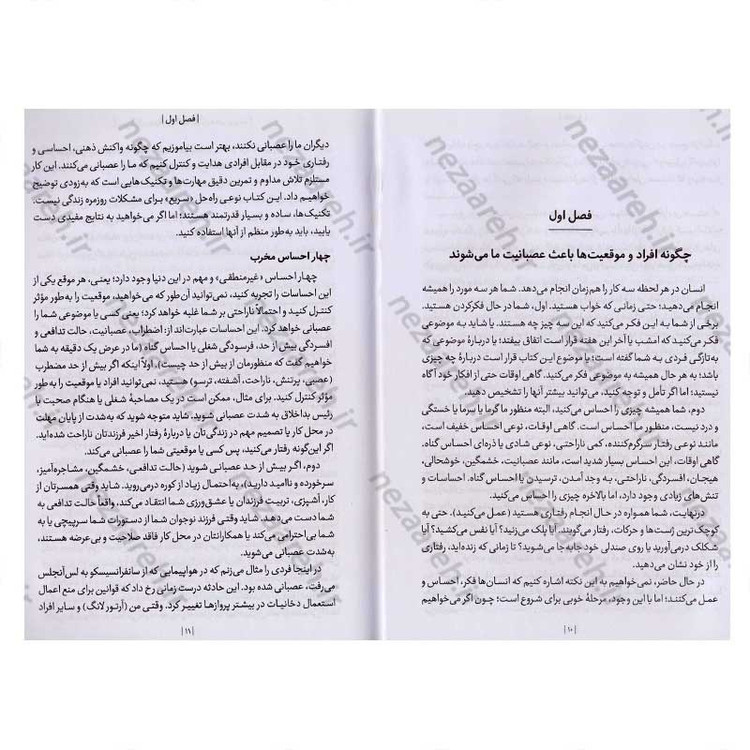 فصل اول
چگونه افراد و موقعیت‌ها باعث عصبانیت ما می‌شوند
انسان در هر لحظه سه کار را هم‌زمان انجام می‌دهد. شما هر سه مورد را همیشه
انجام می‌دهید؛ حتی زمانی که خواب هستید. اول، شما در حال فکرکردن هستید.
برخی از شما به این فکر می‌کنید که این سه چیز چه هستند. یا شاید به موضوعی
فکر می‌کنید که امشب یا آخر این هفته قرار است اتفاق بیفتد؛ یا دربارهٔ موضوعی که
به‌تازگی فردی به شما گفته است؛ یا موضوع این کتاب قرار است دربارهٔ چه چیزی
باشد؛ به هر حال همیشه به موضوعی فکر می‌کنید. گاهی اوقات حتی از افکار خود آگاه
نیستید؛ اما اگر تأمل و توجه کنید، می‌توانید بیشتر آنها را تشخیص دهید.
دوم، شما همیشه چیزی را احساس می‌کنید، البته منظور ما گرما یا سرما یا خستگی
و درد نیست، منظور ما احساس است. گاهی اوقات، نوعی احساس خفیف است،
مانند نوعی رفتار سرگرم‌کننده، کمی ناراحتی، نوعی شادی یا ذره‌ای احساس گناه.
گاهی اوقات، این احساس بسیار شدید است، مانند عصبانیت، خشمگین، خوشحالی،
هیجان، افسردگی، ناراحتی، به وجد آمدن، ترسیدن یا احساس گناه. احساسات و
تنش‌های زیادی وجود دارد، اما بالاخره چیزی را احساس می‌کنید.
درنهایت، شما همواره در حال انجام رفتاری هستید (عمل می‌کنید). حتی به
کوچک‌ترین ژست‌ها و حرکات، رفتار می‌گویند. آیا پلک می‌زنید؟ آیا نفس می‌کشید؟ آیا
شکلک درمی‌آورید یا روی صندلی خود جابه‌جا می‌شوید؟ تا زمانی که زنده‌اید، رفتاری
را از خود نشان می‌دهید.
در حال حاضر، نمی‌خواهیم به این نکته اشاره کنیم که انسان‌ها فکر، احساس و
عمل می‌کنند؛ اما با این وجود، مرحلهٔ خوبی برای شروع است؛ چون اگر می‌خواهیم
| ۱۰ |
| فصل اول |
دیگران ما را عصبانی نکنند، بهتر است بیاموزیم که چگونه واکنش ذهنی، احساسی و
رفتاری خود در مقابل افرادی هدایت و کنترل کنیم که ما را عصبانی می‌کنند. این کار
مستلزم تلاش مداوم و تمرین دقیق مهارت‌ها و تکنیک‌هایی است که به‌زودی توضیح
خواهیم داد. این کتاب نوعی راه‌حل «سریع» برای مشکلات روزمره زندگی نیست.
تکنیک‌ها، ساده و بسیار قدرتمند هستند؛ اما اگر می‌خواهید به نتایج مفیدی دست
یابید، باید به‌طور منظم از آنها استفاده کنید.
چهار احساس مخرب
چهار احساس «غیرمنطقی» و مهم در این دنیا وجود دارد؛ یعنی، هر موقع یکی از
این احساسات را تجربه کنید، نمی‌توانید آن‌طور که می‌خواهید، موقعیت را به‌طور مؤثر
کنترل کنید و احتمالاً ناراحتی بر شما غلبه خواهد کرد؛ یعنی کسی یا موضوعی شما را
عصبانی خواهد کرد. این احساسات عبارت‌اند از: اضطراب، عصبانیت، حالت تدافعی و
افسردگی بیش از حد، فرسودگی شغلی یا احساس گناه (ما در عرض یک دقیقه به شما
خواهیم گفت که منظورمان از بیش از حد چیست). اولاً اینکه اگر بیش از حد مضطرب
(عصبی، پرتنش، ناراحت، آشفته، ترسو) هستید، نمی‌توانید افراد یا موقعیت را به‌طور
مؤثر کنترل کنید. برای مثال، ممکن است در یک مصاحبهٔ شغلی یا هنگام صحبت با
رئیس بداخلاق به شدت عصبانی شوید. شاید متوجه شوید که به‌شدت از پایان مهلت
در محل کار یا تصمیم مهم در زندگی‌تان یا دربارهٔ رفتار اخیر فرزندتان ناراحت شده‌اید.
اگر این‌گونه رفتار می‌کنید، پس کسی یا موقعیتی شما را عصبانی می‌کند.
دوم، اگر بیش از حد عصبانی شوید (حالت تدافعی، خشمگین، مشاجره‌آمیز،
سرخورده و ناامید دارید)، به‌احتمال زیاد از کوره درمی‌روید. شاید وقتی همسرتان از
کار، آشپزی، تربیت فرزندان یا عشق‌ورزی شما انتقاد می‌کند، واقعاً حالت تدافعی به
شما دست می‌دهد. شاید وقتی فرزند نوجوان شما از دستورات شما سرپیچی یا به
شما بی‌احترامی می‌کند یا همکارانتان در محل کار فاقد صلاحیت و بی‌عرضه هستند،
به‌شدت عصبانی می‌شوید.
در اینجا فردی را مثال می‌زنم که در هواپیمایی که از سانفرانسیسکو به لس‌آنجلس
می‌رفت، عصبانی شده بود. این حادثه درست زمانی رخ داد که قوانین برای منع اعمال
استعمال دخانیات در بیشتر پروازها تغییر کرد. وقتی من (آرتور لانگ) و سایر افراد
| ۱۱ |
nezaareh.ir